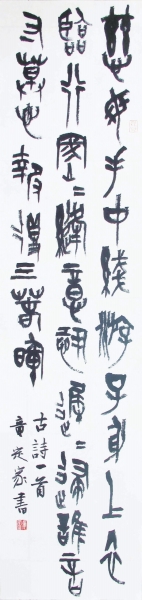 慈母手中綫游子身上衣
臨行密〻縫意恐遲〻歸誰言
寸草心報得三春暉
古詩一首
書